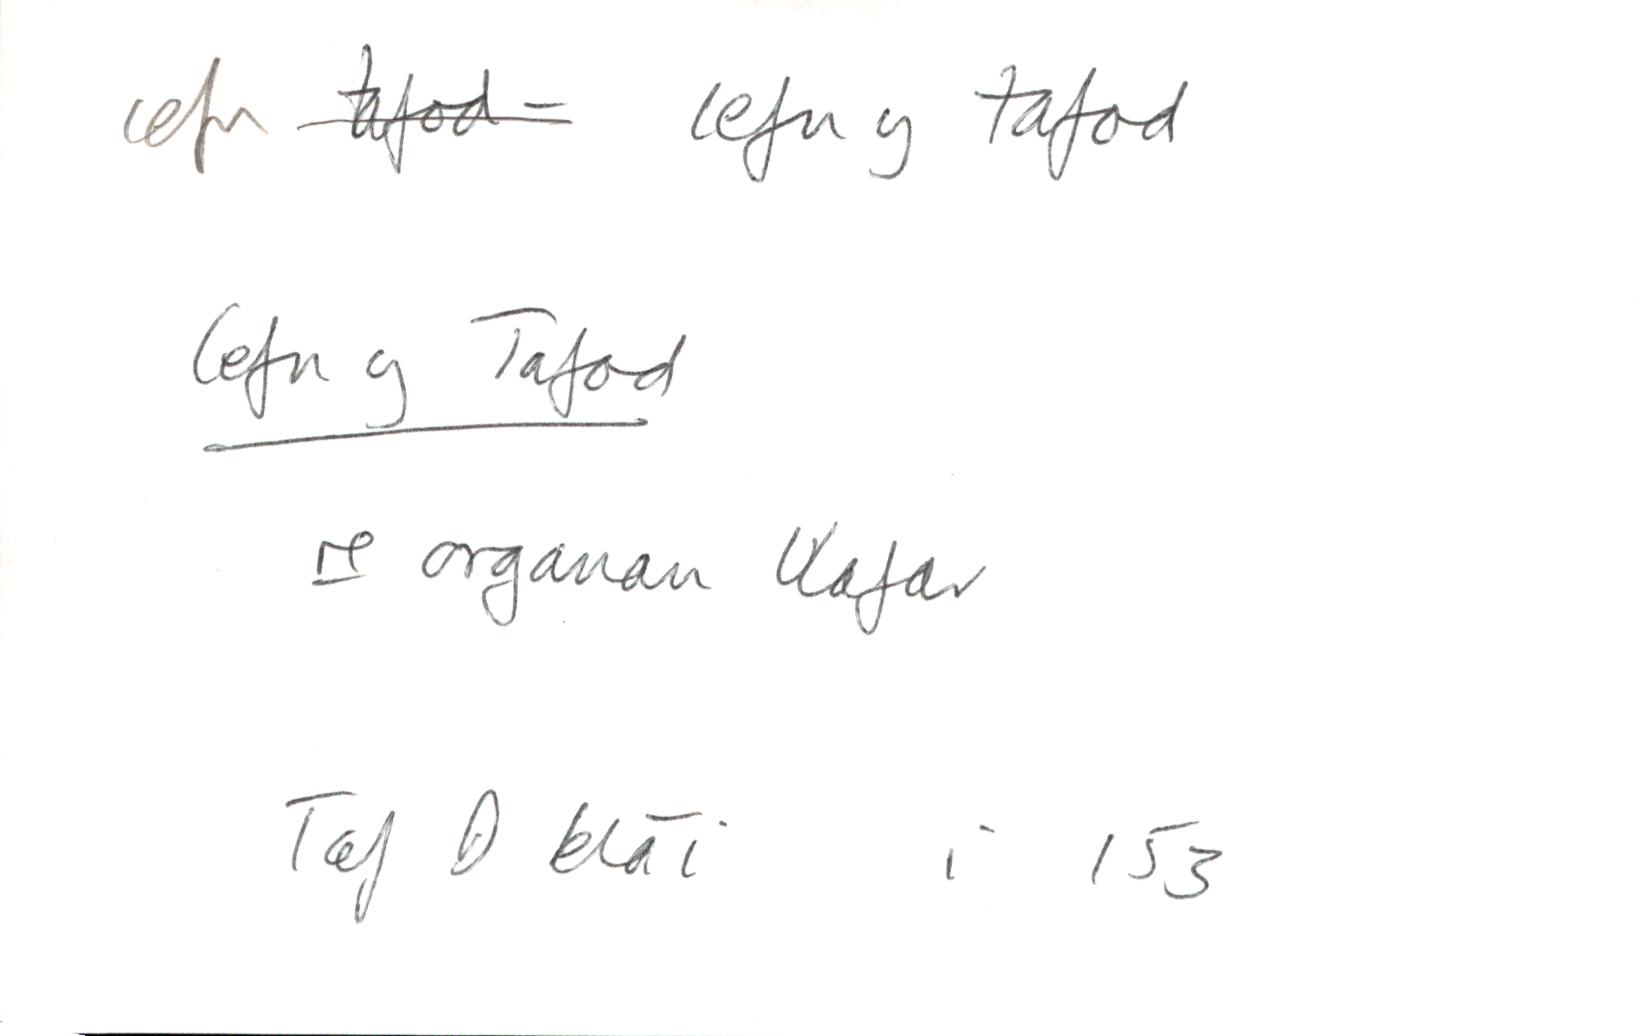 cefn tafod – cefn y tafod
Cefn y Tafod
re organau llafar
Taf D Elai i 153